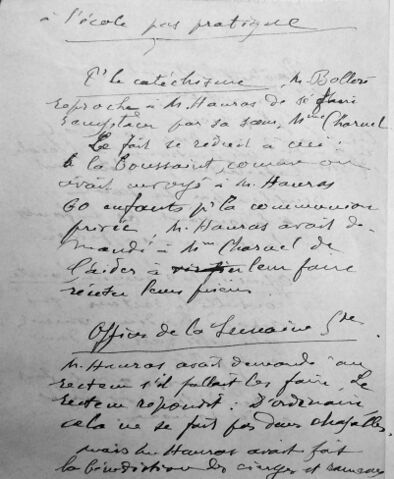 à l'école pas pratique
Pr le catéchisme, M. Bolloré
reproche à M. Hauras de se faire
remplacer par sa sœur, Mme Charuel
Le fait se réduit à ceci :
à la Toussaint, comme on
avait envoyé à M. Hauras
60 enfants pr la communion
privée, M. Hauras avait de-
mandé à Mme Charuel de
l'aider à leur faire
réciter leurs prières.
Offices de la Semaine Ste
M. Hauras avait demandé au
recteur s'il fallait les faire. Le
recteur répondit : D'ordinaire
cela ne se fait pas dans chapelles.
mais M. Hauras avait fait
la bénédiction des cierges et rameaux